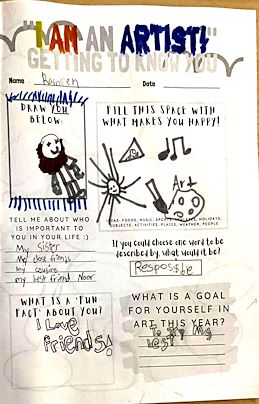 "I AM AN ARTIST!"
GETTING TO KNOW YOU
Name
Date
DRAW YOU
BELOW:
FILL THIS SPACE WITH
WHAT MAKES YOU HAPPY!
Art
IDEAS: FOODS, MUSIC, SPORTS, HOLIDAYS,
SUBJECTS, ACTIVITIES, PLACES, WEATHER, PEOPLE
TELL ME ABOUT WHO
IS IMPORTANT TO
YOU IN YOUR LIFE :)
My sister
My close friends
my cousins
my best friend Noor
If you could choose one word to be
described by, what would it be?
WHAT IS A "FUN
FACT" ABOUT YOU?
I Love
friends!
WHAT IS A GOAL
FOR YOURSELF IN
ART THIS YEAR?
To try my
best